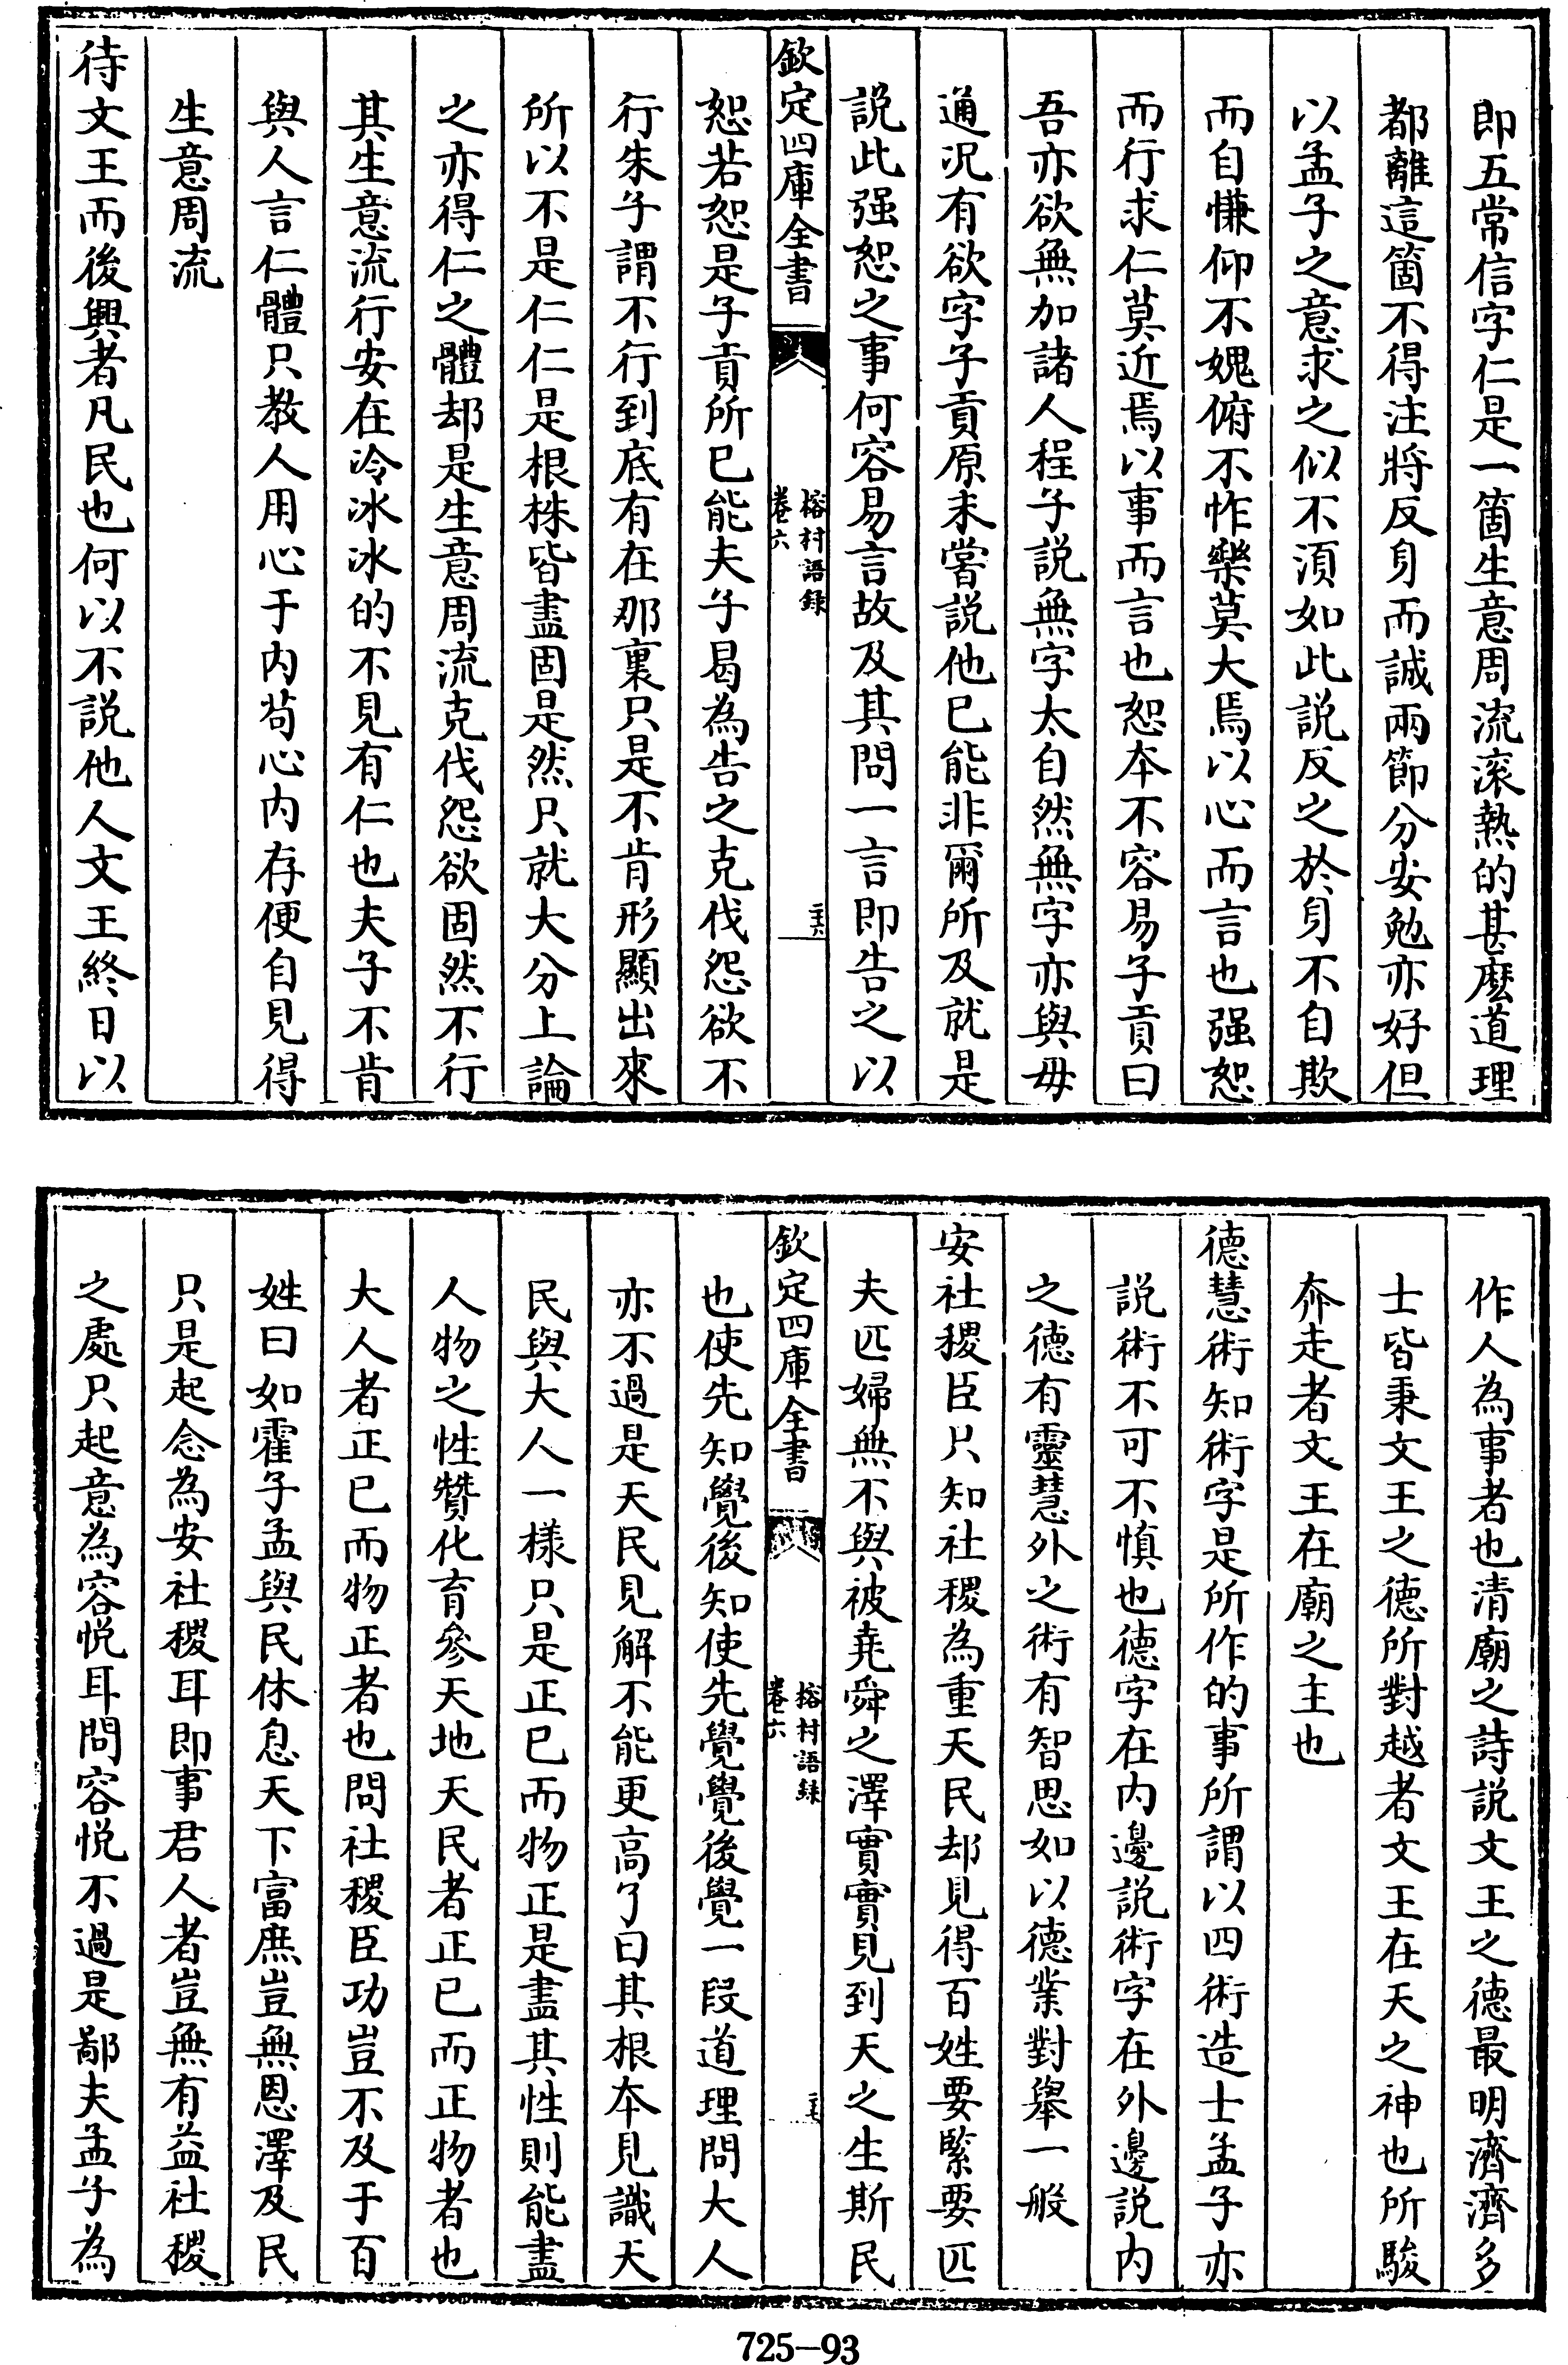 即五常信字仁是一箇生意周流滚熱的甚麽道理
都離這箇不得注將反身而誠兩節分安勉亦好但
以孟子之意求之似不須如此説反之於身不自欺
而自慊仰不媿俯不怍樂莫大焉以心而言也强恕
而行求仁莫近焉以事而言也恕本不容易子貢曰
吾亦欲無加諸人程子説無字太自然無字亦與毋
通况有欲字子貢原未嘗説他已能非爾所及就是
説此强恕之事何容易言故及其問一言即告之以
欽定四庫全書
榕村語録
卷六
二六
恕若恕是子貢所已能夫子曷為告之克伐怨欲不
行朱子謂不行到底有在那裏只是不肯形顯出來
所以不是仁仁是根株皆盡固是然只就大分上論
之亦得仁之體却是生意周流克伐怨欲固然不行
其生意流行安在冷冰冰的不見有仁也夫子不肯
與人言仁體只教人用心于内苟心内存便自見得
生意周流
待文王而後興者凡民也何以不説他人文王終日以
作人為事者也清廟之詩説文王之德最明濟濟多
士皆秉文王之德所對越者文王在天之神也所駿
奔走者文王在廟之主也
德慧術知術字是所作的事所謂以四術造士孟子亦
説術不可不慎也德字在内邊説術字在外邊説内
之德有靈慧外之術有智思如以德業對舉一般
安社稷臣只知社稷為重天民却見得百姓要緊要匹
夫匹婦無不與被堯舜之澤實實見到天之生斯民
欽定四庫全書
榕村語録
卷六
二七
也使先知覺後知使先覺覺後覺一段道理問大人
亦不過是天民見解不能更高了曰其根本見識天
民與大人一樣只是正已而物正是盡其性則能盡
人物之性贊化育參天地天民者正已而正物者也
大人者正已而物正者也問社稷臣功豈不及于百
姓曰如霍子孟與民休息天下富庶豈無恩澤及民
只是起念為安社稷耳即事君人者豈無有益社稷
之處只起意為容悦耳問容悦不過是鄙夫孟子為
725-93